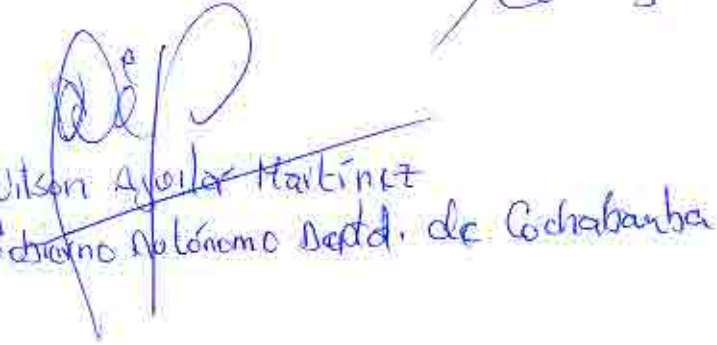 Wilson Aguilar Martínez
Gobierno Autónomo Deptal. de Cochabamba